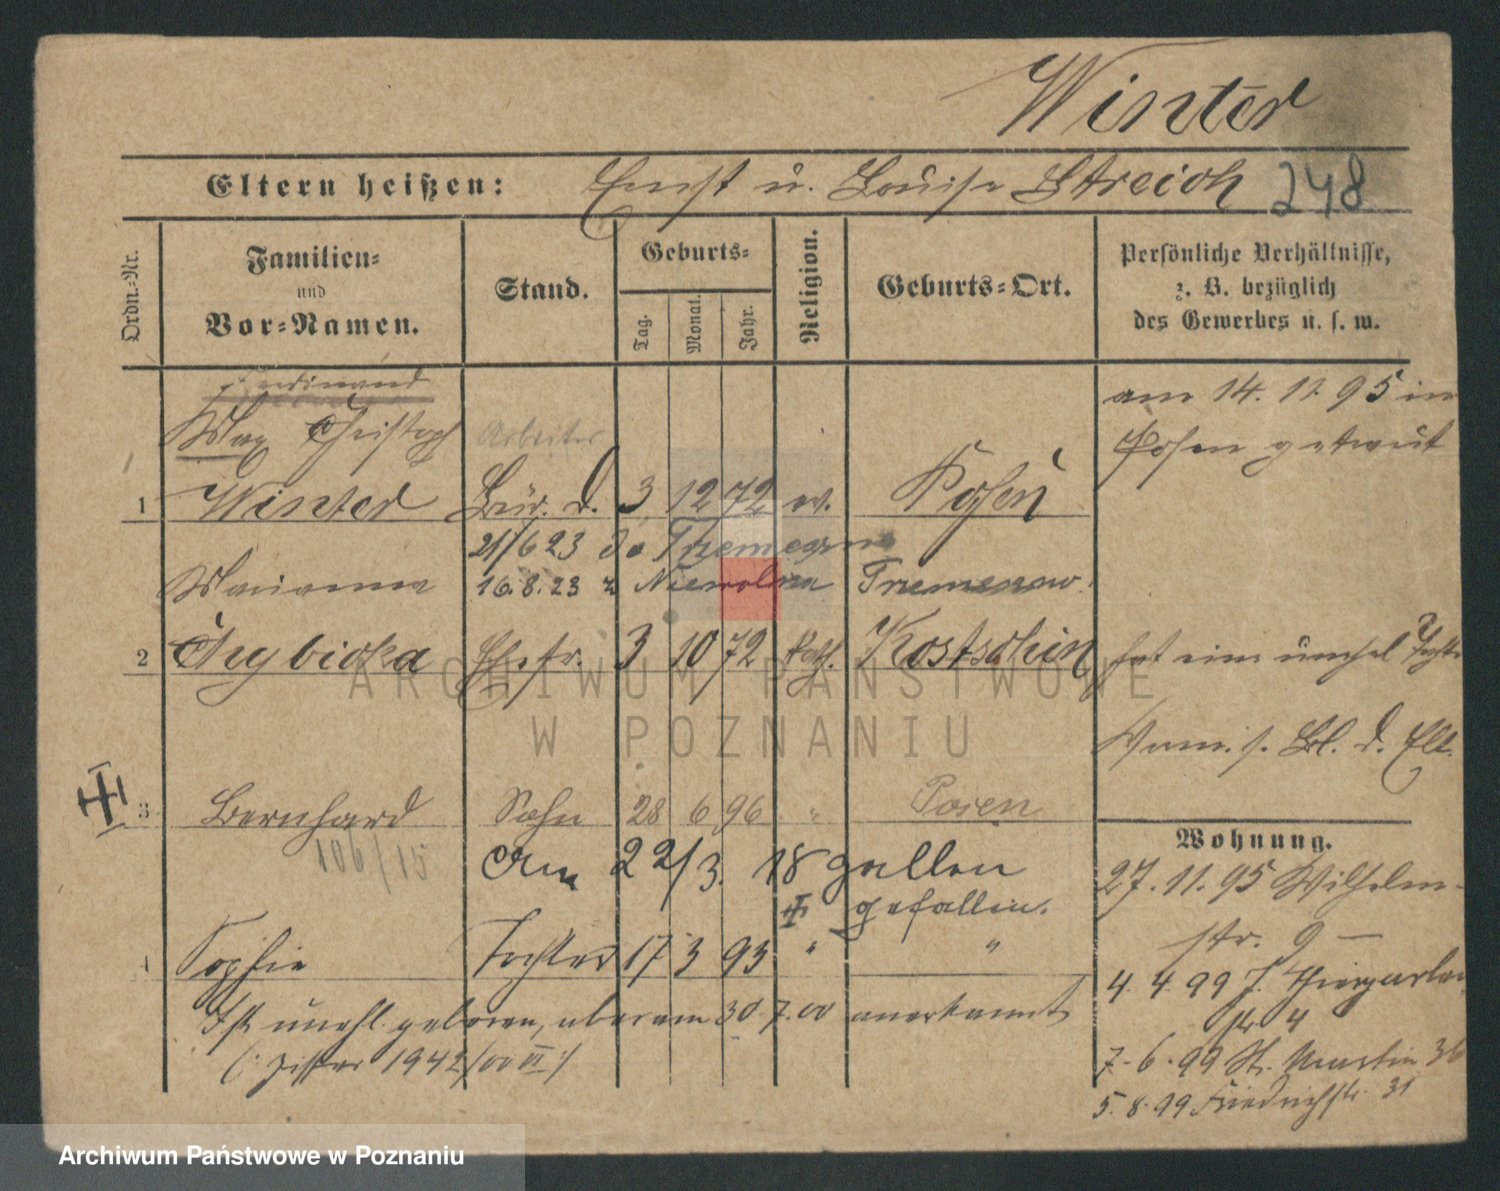 Winter
Eltern heißen: Ernst u. Louise Streich 248
Ordn.-Nr.
Familien- und Vor-Namen.
Stand.
Geburts-
Tag. Monat. Jahr.
Religion.
Geburts-Ort.
Persönliche Verhältnisse,
z. B. bezüglich
des Gewerbes u. s. w.
Ferdinand
Max Christoph Arbeiter
1 Winter Bür. D. 3 12 72 ev. Posen
am 14. 11. 95 in
Posen getraut
21/6 23 do
Marianna 16.8.23 z Niewolna
2 Ehefr. 3 10 72 kath. Kostschin
hat eine unehel
3 Bernhard Sohn 28 6 96 " Posen
106/15
Am 22/3. 18 gallen
gefallen.
Sophie Tochter 17 3 93 " "
Ist unehl. geboren, aber am 30 7. 00 anerkannt
1942/00 VI
Wohnung.
27. 11. 95 Wilhelm-
str. 9 —
4. 4. 99 Thiergarten
str 4
7. 6. 99 St. Martin 36
5. 8. 99 Friedrichstr. 31
ARCHIWUM PAŃSTWOWE
W POZNANIU
Archiwum Państwowe w Poznaniu